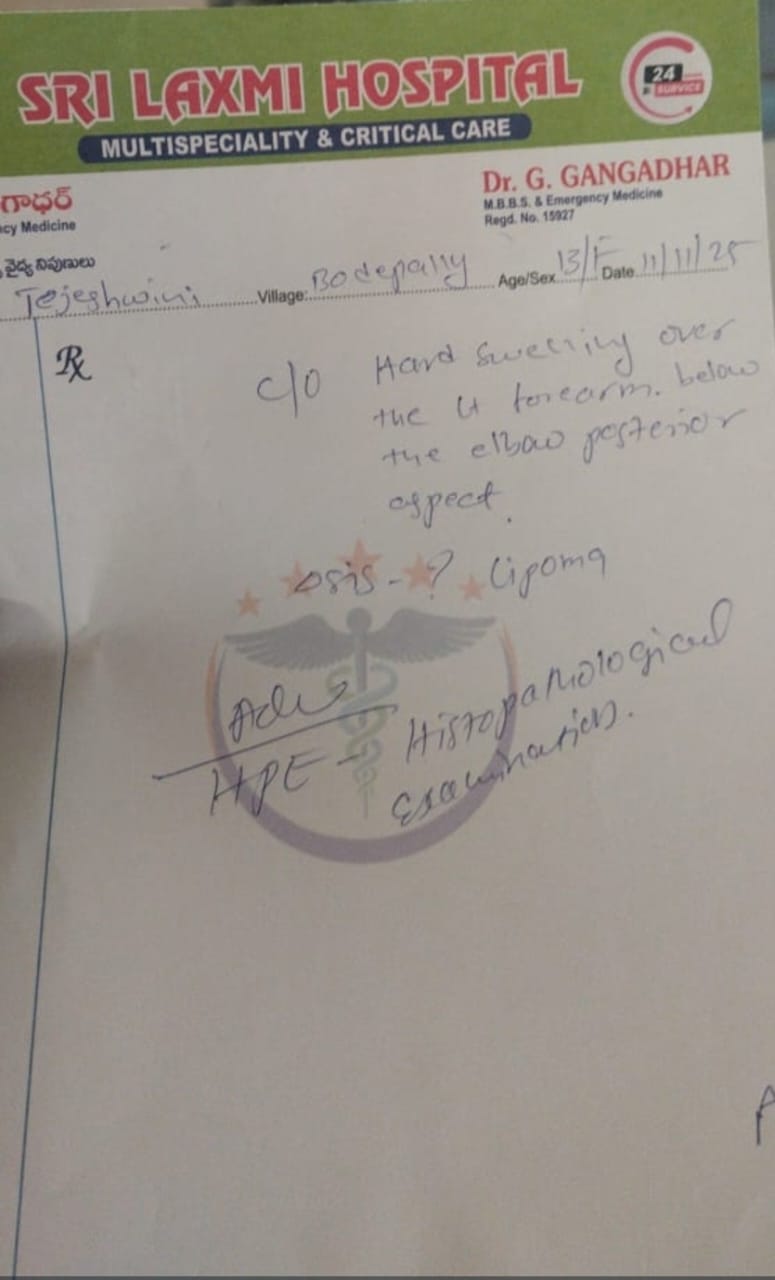 SRI LAXMI HOSPITAL
24
SERVICE
MULTISPECIALITY & CRITICAL CARE
గాధర్
cy Medicine
వైద్య నిపుణులు
Dr. G. GANGADHAR
M.B.B.S. & Emergency Medicine
Regd. No. 15927
Tejeshwini Village: Bodepally Age/Sex 13/F Date 11/11/25
Rx
C/O Hard swelling over
the Lt forearm. below
the elbow posterior
aspect.
- ? Lipoma
Adv
HPE - Histopathological
Examination.